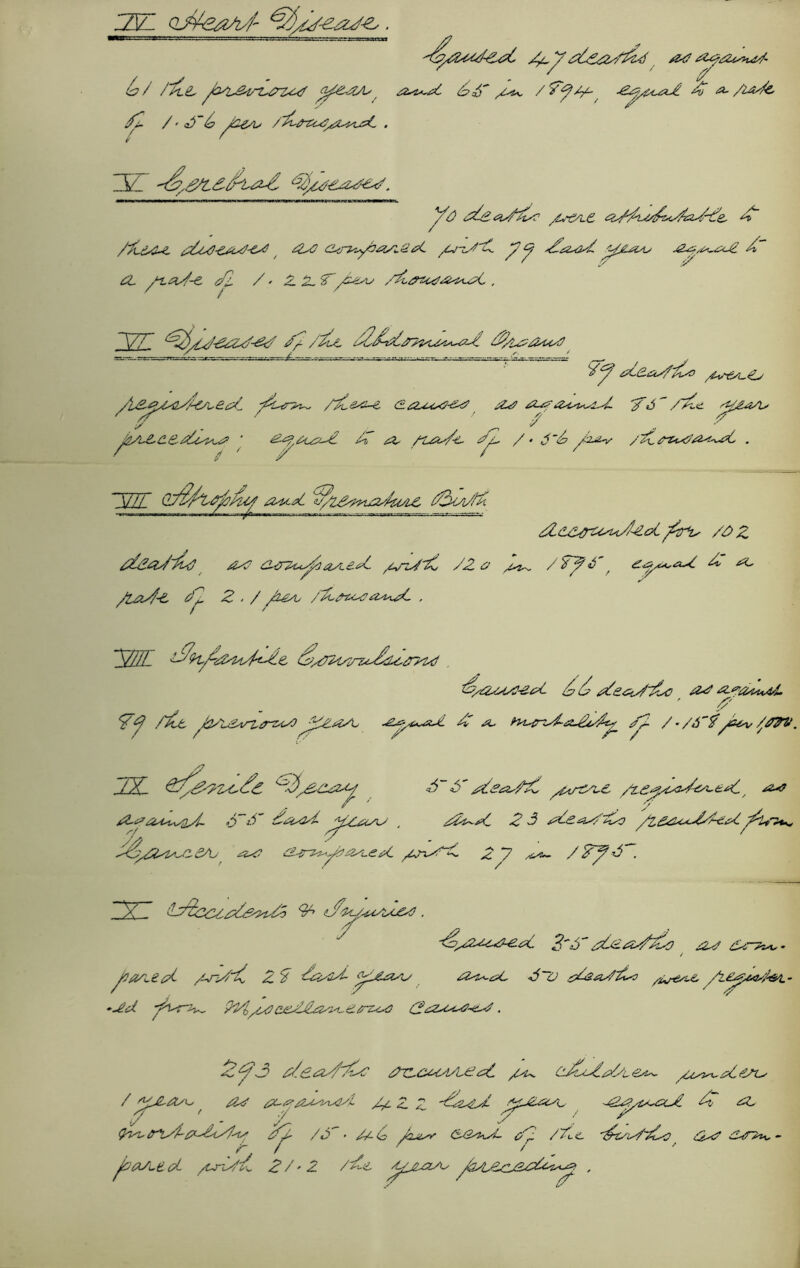 IV. Heart Disease.
Caused 47 deaths, as against
61 the previous year, and 65 in 1894, equal to a rate
of 1.56 per thousand.
V. General Diseases.
70 deaths were attributable to
these diseases, as compared with 79 last year equal to
a rate of 1.228 per thousand.
VI. Diseases of the Abdominal Organs
89 deaths were
registered from these causes, as against 85 the year
preceding; equal to a rate of 1.56 per thousand.
VII. Atrophy and Premature Birth
Accounted for 102
deaths, as compared with 120 in 1895, equal to a
rate of 2.1 per thousand.
VIII. Infantile Convulsions.
Caused 66 deaths, as against
89 the previous year. equal to a mortality of 1.158 per 1000.
IX. Senile Decay
55 death were registered, as
against 55 last year. And 23 deaths resulted from
Cancer, as compared with 27 in 1895.
X. Accidents & Injuries.
Caused 35 deaths, as com-
pared with 28 last year, and 50 deaths were register-
-ed from Miscellaneous Causes.
293 deaths occurred in Children under
1 year, as against 422 last year, equal to a
mortality of 15.46 per cent of the births, as com-
pared with 21.2 the year preceding.